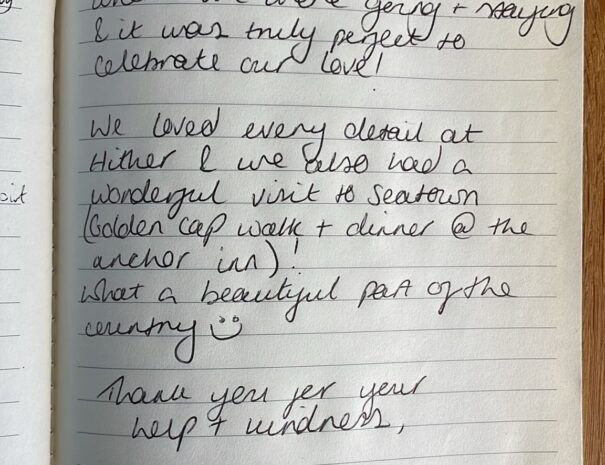 were going + staying
& it was truly perfect to
celebrate our love!
We loved every detail at
Hither & we also had a
wonderful visit to Seatown
(Golden cap walk + dinner @ the
anchor inn)!
What a beautiful part of the
country
Thank you for your
help + kindness,